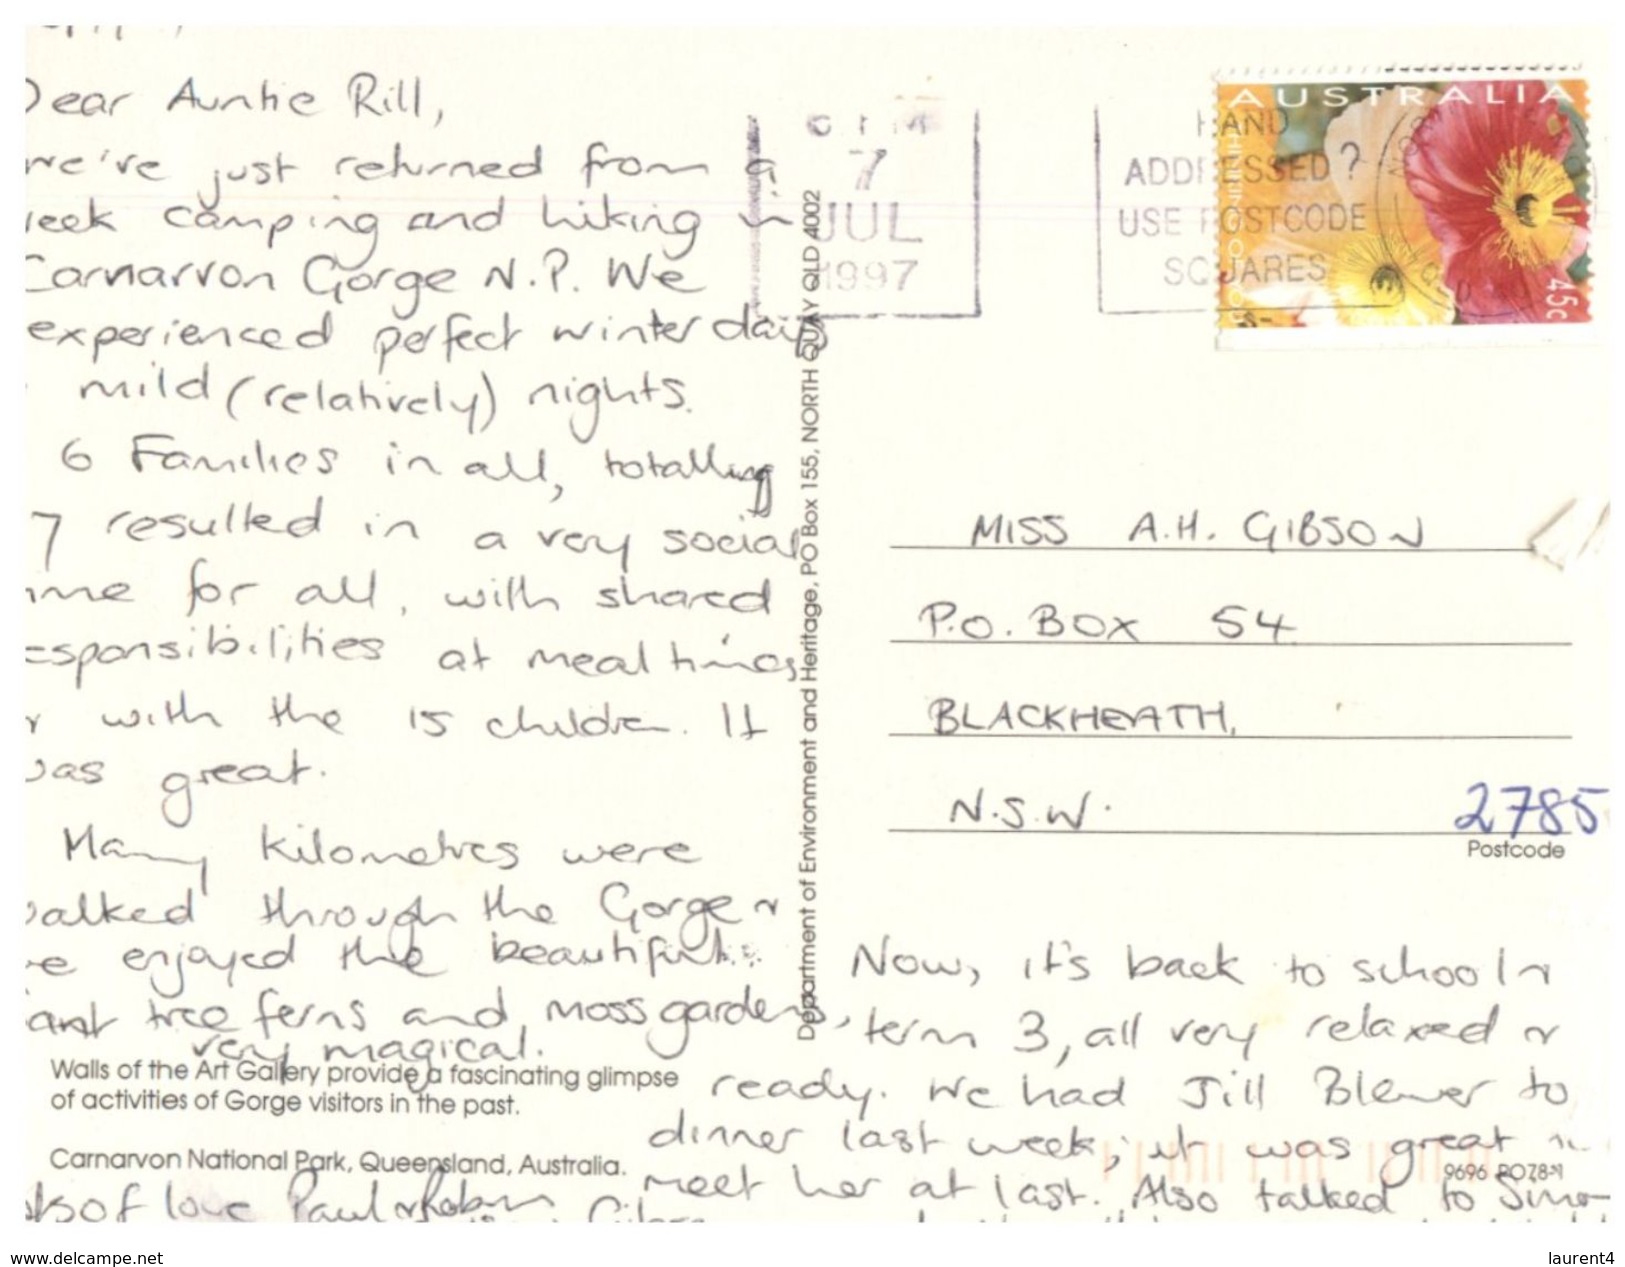 Dear Auntie Rill,
we've just returned from a
week camping and hiking in
Carnarvon Gorge N.P. We
experienced perfect winter days
mild (relatively) nights.
6 Families in all, totalling
7 resulted in a very social
time for all, with shared
responsibilities at mealtimes
& with the 15 children. It
was great.
Many kilometres were
walked through the Gorge &
we enjoyed the beautiful
giant tree ferns and moss gardens,
very magical.
Walls of the Art Gallery provide a fascinating glimpse
of activities of Gorge visitors in the past.
Carnarvon National Park, Queensland, Australia.
lots of love Paul & Robyn
Department of Environment and Heritage, PO Box 155, NORTH QUAY QLD 4002
6 PM
7
JUL
1997
HAND
ADDRESSED?
USE POSTCODE
SQUARES
AUSTRALIA
45c
MISS A.H. GIBSON
P.O. BOX 54
BLACKHEATH,
N.S.W. 2785
Postcode
Now, it's back to school &
term 3, all very relaxed &
ready. We had Jill Blewer to
dinner last week; it was great
meet her at last. Also talked to
9696
www.delcampe.net
laurent4